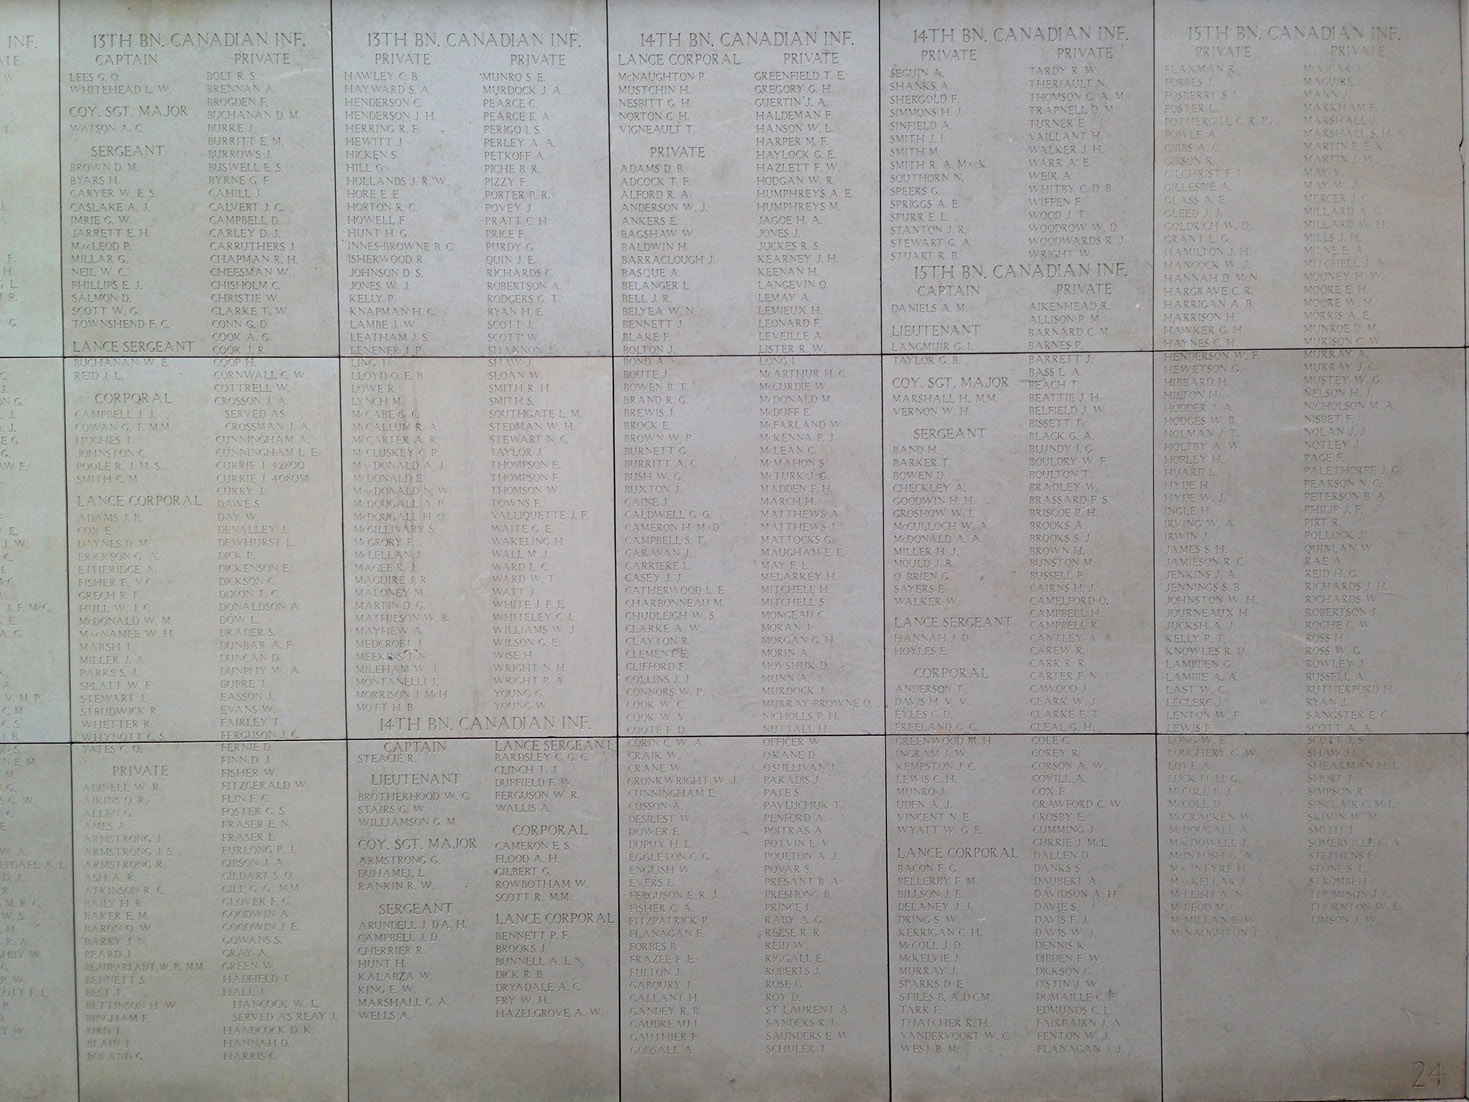 13TH BN. CANADIAN INF.
CAPTAIN
LEES G. O.
WHITEHEAD L. W.
COY. SGT. MAJOR
WATSON A. C.
SERGEANT
BROWN D. M.
BYARS H.
CARVER W. E. S.
CASLAKE A. J.
IMRIE G. W.
JARRETT E. H.
MACLEOD P.
MILLAR G.
NEIL W. C.
PHILLIPS E. J.
SALMON D.
SCOTT W. G.
TOWNSHEND F. C.
LANCE SERGEANT
BUCHANAN W. E.
REID J. L.
CORPORAL
CAMPBELL J. J.
COWAN G. T. MM
HUGHES T.
JOHNSTON C.
POOLE R. J. M. S.
SMITH C. M.
LANCE CORPORAL
ADAMS J. B.
COX E.
DAYNES D. M.
ERICKSON G. A.
ETHERIDGE A.
FISHER F. V.C.
GRECH R. F.
HULL W. J. C.
MCDONALD W. M.
MACNAMEE W. H.
MARSH T.
MILLER J. A.
PARKS S. J.
SPLATT W. F.
STEWART J.
STRUDWICK R.
WHETTER R.
WHYNOTT C. S.
YATES C. O.
PRIVATE
ADNELL W. R.
AIKINS O. R.
ALLEN G.
AMES A.
ARMSTRONG J.
ARMSTRONG J. S.
ARMSTRONG R.
ASH A. R.
ATKINSON R. C.
BAILY H. R.
BAKER E. M.
BARON O. W.
BARRY J. N.
BEARD J.
BEAUPARLANT W. B. MM
BENNETT S.
BEST T.
BETTINSON H. W.
BINGHAM F.
BIRD T.
BLAIN J.
BOLAND G.
PRIVATE
BOLT R. S.
BRENNAN A.
BROGDEN F.
BUCHANAN D. M.
BURKE J.
BURRITT E. M.
BURROWS J.
BUSWELL E. S.
BYRNE G. F.
CAHILL J.
CALVERT J. C.
CAMPBELL D.
CARLEY D. J.
CARRUTHERS J.
CHAPMAN R. H.
CHEESMAN W.
CHISHOLM C.
CHRISTIE W.
CLARKE T. W.
CONN G. D.
COOK A. G.
COOK J. R.
COOP H.
CORNWALL C. W.
COTTRELL W.
CROSSON J. A.
SERVED AS
CROSSMAN J. A.
CUNNINGHAM A.
CUNNINGHAM L. E.
CURRIE J. 42800
CURRIE J. 408058
CURRY J.
DAWE S.
DAY W.
DEVALLEY J.
DEWHURST L.
DICK P.
DICKENSON E.
DICKSON C.
DIXON T. C.
DONALDSON A.
DOW L.
DRADER S.
DUNBAR A. F.
DUNCAN D.
DUNPHY W. A.
DUPRE T.
EASSON J.
EVANS W.
FAIRLEY T.
FERGUSON J. C.
FERNIE D.
FINN D. J.
FISHER W.
FITZGERALD W.
FLIN F. C.
FOSTER G. S.
FRASER E. N.
FRASER L.
FURLONG P. J.
GIBSON J. A.
GILDART S. O.
GILL G. G. MM
GLOVER F. G.
GOODWIN A.
GOODWIN J. E.
GOWANS S.
GRAY A.
GREEN W.
HADFIELD T.
HALL J.
HANCOCK W. L.
SERVED AS REAY J.
HANDCOCK D. K.
HANNAH D.
HARRIS C.
13TH BN. CANADIAN INF.
PRIVATE
HAWLEY C. B.
HAYWARD S. A.
HENDERSON C.
HENDERSON J. H.
HERRING R. F.
HEWITT J.
HICKEN S.
HILL G.
HOLLANDS J. R. W.
HORE E. E.
HORTON R. C.
HOWELL F.
HUNT H. G.
INNES-BROWNE B. C.
ISHERWOOD R.
JOHNSON D. S.
JONES W. J.
KELLY P.
KNAPMAN H. C.
LAMBE J. W.
LEATHAM J. S.
LENENER J. P.
LING T.
LLOYD O. E. B.
LOWE R.
LYNCH M.
MCCABE G. C.
MCCALLUM R. A.
MCCARTER A. R.
MCCLUSKEY C. P.
MCDONALD A. J.
MCDONALD E.
MCDONALD N. W.
MCDOUGALL A. P.
MCDOUGALL H. O.
MCGILLIVARY S.
MCGRORY F.
MCLELLAN J.
MAGEE R. J.
MAGUIRE J. R.
MALONEY M.
MARTIN D. G.
MATHIESON W. R.
MAYHEW A.
MEDCROFT H.
MEEKINSON N.
MILEHAM W. J.
MONTANELLI J.
MORRISON J. MCH.
MOTT H. B.
PRIVATE
MUNRO S. E.
MURDOCK J. A.
PEARCE C.
PEARCE E. A.
PERIGO I. S.
PERLEY A. A.
PETKOFF A.
PICHE B. R.
PIZZY F.
PORTER P. R.
POVEY J.
PRATT C. H.
PRICE F.
PURDY G.
QUIN J. E.
RICHARDS C.
ROBERTSON A.
RODGERS G. T.
RYAN H. E.
SCOTT J.
SCOTT W.
SHANNON J.
SHAW J.
SLOAN W.
SMITH R. H.
SMITH S.
SOUTHGATE L. M.
STEDMAN W. H.
STEWART N. C.
TAYLOR J.
THOMPSON E.
THOMPSON F.
THOMSON W.
TOWNS F.
VALLIQUETTE J. F.
WAITE G. E.
WAKELING H.
WALL M. J.
WARD L. C.
WARD W. T.
WATT J.
WHITE J. F. E.
WHITELEY C. L.
WILLIAMS W. J.
WILSON G. E.
WISE H.
WRIGHT N. H.
WRIGHT P. A.
YOUNG G.
YOUNG W.
14TH BN. CANADIAN INF.
CAPTAIN
STEACIE R.
LIEUTENANT
BROTHERHOOD W. C.
STAIRS G. W.
WILLIAMSON G. M.
COY. SGT. MAJOR
ARMSTRONG G.
DUHAMEL L.
RANKIN R. W.
SERGEANT
ARUNDELL J. D'A. H.
CAMPBELL J. D.
CHERRIER R.
HUNT H.
KALABZA W.
KING E. W.
MARSHALL C. A.
WELLS A.
LANCE SERGEANT
BARDSLEY C. G. C.
CLINCH T. J.
DUFFIELD F. W.
FERGUSON W. R.
WALLIS A.
CORPORAL
CAMERON E. S.
FLOOD A. H.
GILBERT G.
ROWBOTHAM W.
SCOTT R. MM.
LANCE CORPORAL
BENNETT P. F.
BROOKS J.
BUNNELL A. L.
DICK R. B.
DRYADALE A. G.
FRY W. H.
HAZELGROVE A. W.
14TH BN. CANADIAN INF.
LANCE CORPORAL
MCNAUGHTON P.
MUSTCHIN H.
NESBITT G. H.
NORTON C. H.
VIGNEAULT T.
PRIVATE
ADAMS D. B.
ADCOCK T. F.
ALFORD R. A.
ANDERSON W. J.
ANKERS E.
BAGSHAW W.
BALDWIN H.
BARRACLOUGH J.
BASQUE A.
BELANGER L.
BELL J. R.
BELYEA W. N.
BENNETT J.
BLAKE F.
BOLTON J.
BOND A.
BOUTE J.
BOWEN B. T.
BRAND R. G.
BREWIS J.
BROCK E.
BROWN W. P.
BURNETT G.
BURRITT A. C.
BUSH W. G.
BUXTON J.
CAINE J.
CALDWELL G. G.
CAMERON H. MCD.
CAMPBELL S. T.
CARAVAN J.
CARRIERE L.
CASEY J. J.
CATHERWOOD L. E.
CHARBONNEAU M.
CHUDLEIGH W. S.
CLARKE A. W.
CLAYTON R.
CLEMENT E.
CLIFFORD F.
COLLINS J. J.
CONNORS W. P.
COOK W. C.
COOK W. V.
COOTE F. D.
CORIN C. W. A.
CRAIK W.
CRANE W.
CRONKWRIGHT W. J.
CUNNINGHAM E.
CUSSON A.
DESILEST W.
DOWER E.
DUPUY H. L.
EGGLETON C. G.
ENGLISH W.
EVERS L.
FERGUSON E. R. J.
FISHER C. A.
FITZPATRICK P.
FLANAGAN F.
FORBES B.
FRAZEE F. E.
FULTON J.
GABOURY J.
GALLANT H.
GANDEY R. B.
GAUDREAU J.
GAUTHIER F.
GODSALL A.
PRIVATE
GREENFIELD T. E.
GREGORY G. H.
GUERTIN J. A.
HALDEMAN F.
HANSON W. L.
HARPER M. F.
HAYLOCK G. E.
HAZLETT F. W.
HODGAN W. R.
HUMPHREYS A. E.
HUMPHREYS M.
JAGOE H. A.
JONES J.
JUCKES R. S.
KEARNEY J. H.
KEENAN H.
LANGEVIN O.
LEMAY A.
LEMIEUX H.
LEONARD F.
LEVEILLE A.
LISTER R. W.
LONG T.
MCARTHUR H. C.
MCCURDIE W.
MCDONALD M.
MCDUFF E.
MCFARLAND W.
MCKENNA P. J.
MCLEAN C.
MCMAHON S.
MCTURK J. G.
MADDEN F. H.
MARCH H.
MATTHEWS A.
MATTHEWS J.
MATTOCKS G.
MAUGHAM E. E.
MAY F. L.
MELARKEY H.
MITCHELL H.
MITCHELL S.
MONGEAU C.
MORAN J.
MORGAN G. H.
MORIN A.
MOVSHUK D.
MUNN A.
MURDOCK J.
MURRAY-BROWNE O.
NICHOLLS P. H.
NUTTALL H.
OFFICER W.
O'KANE D.
O'SULLIVAN J.
PARADIS J.
PATE S.
PAVLUCHUK T.
PENFORD A.
POITRAS A.
POTVIN L. V.
POULTON A. J.
POVAR S.
PRESANT B. A.
PRESHONG B.
PRINCE L.
RABY A. G.
REESE R. R.
REID W.
RIGGALL E.
ROBERTS J.
ROSE G.
ROY D.
ST LAURENT A.
SANDERS R. L.
SAUNDERS E. W.
SCHULER J.
14TH BN. CANADIAN INF.
PRIVATE
SEGUIN A.
SHANKS A.
SHERGOLD F.
SIMMONS H. J.
SINFIELD A.
SMITH J. J.
SMITH M.
SMITH R. A. MACK.
SOUTHORN N.
SPEERS G.
SPRIGGS A. E.
SPURR E. L.
STANTON J. R.
STEWART G. A.
STUART R. B.
PRIVATE
TARDY R. W.
THERIAULT N.
THOMSON G. A. M.
TRAPNELL D. M.
TURNER E.
VAILLANT H.
WALKER J. H.
WARR A. E.
WEIR A.
WHITBY C. D. B.
WIFFEN F.
WOOD J. T.
WOODROW W. D.
WOODWARDS R. J.
WRIGHT W.
15TH BN. CANADIAN INF.
CAPTAIN
DANIELS A. M.
LIEUTENANT
LANGMUIR G. I.
TAYLOR G. B.
COY. SGT. MAJOR
MARSHALL H. MM
VERNON W. H.
SERGEANT
BAND H.
BARKER T.
BOWEN D.
CHECKLEY A.
GOODWIN H. H.
GROSHOW W. J.
MCCULLOCH W. A.
MCDONALD A. A.
MILLER H. J.
MOULD J. R.
O'BRIEN G.
SAYERS E.
WALKER W.
LANCE SERGEANT
HANNAH J. D.
HOYLES E.
CORPORAL
ANDERSON T.
DAVIS H. V. V.
EYLES C. D.
FREELAND G. G.
GREENWOOD M. H.
INGRAM J. W.
KEMPSTON J. C.
LEWIS C. H.
MUNRO J.
UDEN A. J.
VINCENT N. E.
WYATT W. G. E.
LANCE CORPORAL
BACON F. G.
BELLERBY F. M.
BILLSON J. E.
DELANEY J. J.
DRING S. W.
KERRIGAN C. H.
MCCOLL J. D.
MCKELVIE J.
MURRAY J.
SPARKS D. E.
STILES B. A. D.C.M.
TARR F.
THATCHER R. H.
VANDERVOORT W. C.
WEST B. M.
PRIVATE
AIKENHEAD R.
ALLISON P. M.
BARNARD C. M.
BARNES P.
BARRETT J.
BASS L. A.
BEACH T.
BEATTIE J. H.
BELFIELD J. W.
BISSETT T.
BLACK G. A.
BLUNDY J. G.
BOULDRY W. F.
BOULTON T.
BRADLEY W.
BRASSARD F. S.
BRISCOE P. H.
BROOKS A.
BROOKS S. J.
BROWN H.
BUNSTON M.
BUSSELL F.
CAIRNS H. J.
CAMELFORD O.
CAMPBELL H.
CAMPBELL R.
CANTLEY A. A.
CAREW R.
CARR R. R.
CARTER F. N.
CAWOOD J.
CLARK W. J.
CLARKE E. T.
CLEAL G. H.
COLE C.
COREY R.
CORSON A. W.
COVILL A.
COX F.
CRAWFORD C. W.
CROSBY E.
CUMMING J.
CURRIE J. MCL.
DALLEN D.
DANKS S.
DAUBERT A.
DAVIDSON A. H.
DAVIE S. J.
DAVIS F. J.
DAVIS W. J.
DENNIS K.
DIBDEN F. W.
DICKSON C.
DISTIN J. W.
DOMAILLE C. F.
EDMUNDS C. L.
FAIRBAIRN J. A.
FENTON W. J.
FLANAGAN J. J.
15TH BN. CANADIAN INF.
PRIVATE
FLAXMAN R.
FORBES J.
FOSBERRY S. J.
FOSTER L.
FOTHERGILL C. R. P.
FOWLE A.
GIBBS A. C.
GIBSON R.
GILCHRIST F. J.
GILLESPIE A.
GLASS A. E.
GLEED J. J.
GOLDRICH W. D.
GRANT L. G.
HAMILTON J. H.
HANCOCK W. J.
HANNAH D. MCN.
HARGRAVE C. R.
HARRIGAN A. B.
HARRISON H.
HAWKER G. H.
HAYNES C. H.
HENDERSON W. F.
HEWETSON G.
HIBBARD H.
HILTON H.
HODDER J. A.
HODGES W. B.
HOLMAN J. T.
HOLTBY A. W.
HOPLEY H.
HUARD L.
HYDE H.
HYDE W. J.
INGLE H.
IRVING W. A.
IRWIN J.
JAMES S. H.
JAMIESON R. C.
JENKINS J. A.
JENNINGS S. R.
JOHNSTON W. H.
JOURNEAUX H.
JUCKSH A. J.
KELLY P. T.
KNOWLES R. D.
LAMBDEN G.
LAMBIE A. A.
LAST W. C.
LECLERC J.
LENTON W. F.
LEWIS F.
LONG W. E.
LOUGHERY G. W.
LOVE A.
LUCK H. H. G.
MCCOLL B. J.
MCCOLL D.
MCCRACKEN W.
MCDOUGALL A.
MACDOWELL J.
MCINTOSH G. A.
MACINTYRE H.
MACKELLAR J.
MCLEISH A. N.
MCLEOD M.
MCMILLAN E. W.
MCNAUGHTON J.
PRIVATE
MCVICAR J.
MAGUIRE J.
MANN J.
MARKHAM F.
MARSHALL J.
MARSHALL S. H.
MARTIN F. E. K.
MARTIN J. D.
MAY S.
MAY W. J.
MERCER J. C.
MILLARD A. G.
MILLARD W. H.
MILLS J. H.
MILNE E. A.
MITCHELL J. A.
MOONEY H. W.
MOORE E. H.
MOORE W. H.
MORRIS A. E.
MUNROE D. M.
MURISON C. W.
MURRAY A.
MURRAY J. C.
MUSTEY W. G.
NELSON H. J.
NICHOLSON M. A.
NISBET F.
NOLAN J. J.
NOTLEY J.
PAGE F.
PALETHORPE J. G.
PEARSON N. C.
PETERSON B. A.
PHILIP J. F.
PIRT R.
POLLOCK J.
QUINLAN W.
RAE A.
REID H. G.
RICHARDS J. H.
RICHARDS W.
ROBERTSON J.
ROCHE C. W.
ROSS H.
ROSS W. G.
ROWLEY J.
RUSSELL A.
RUTHERFORD H.
RYAN J.
SANGSTER E. C.
SCOTT A. A.
SCOTT T. S.
SHAW H.
SHEARMAN H. J.
SHORT J.
SIMPSON R.
SINCLAIR C. MCL.
SKIMIN W. M.
SMITH T.
SOMERVILLE C. A.
STEPHENS F.
STONE S. L.
STROMBEH J.
THOMPSON J. C.
THORNTON W. E.
TIMSON J. W.
24